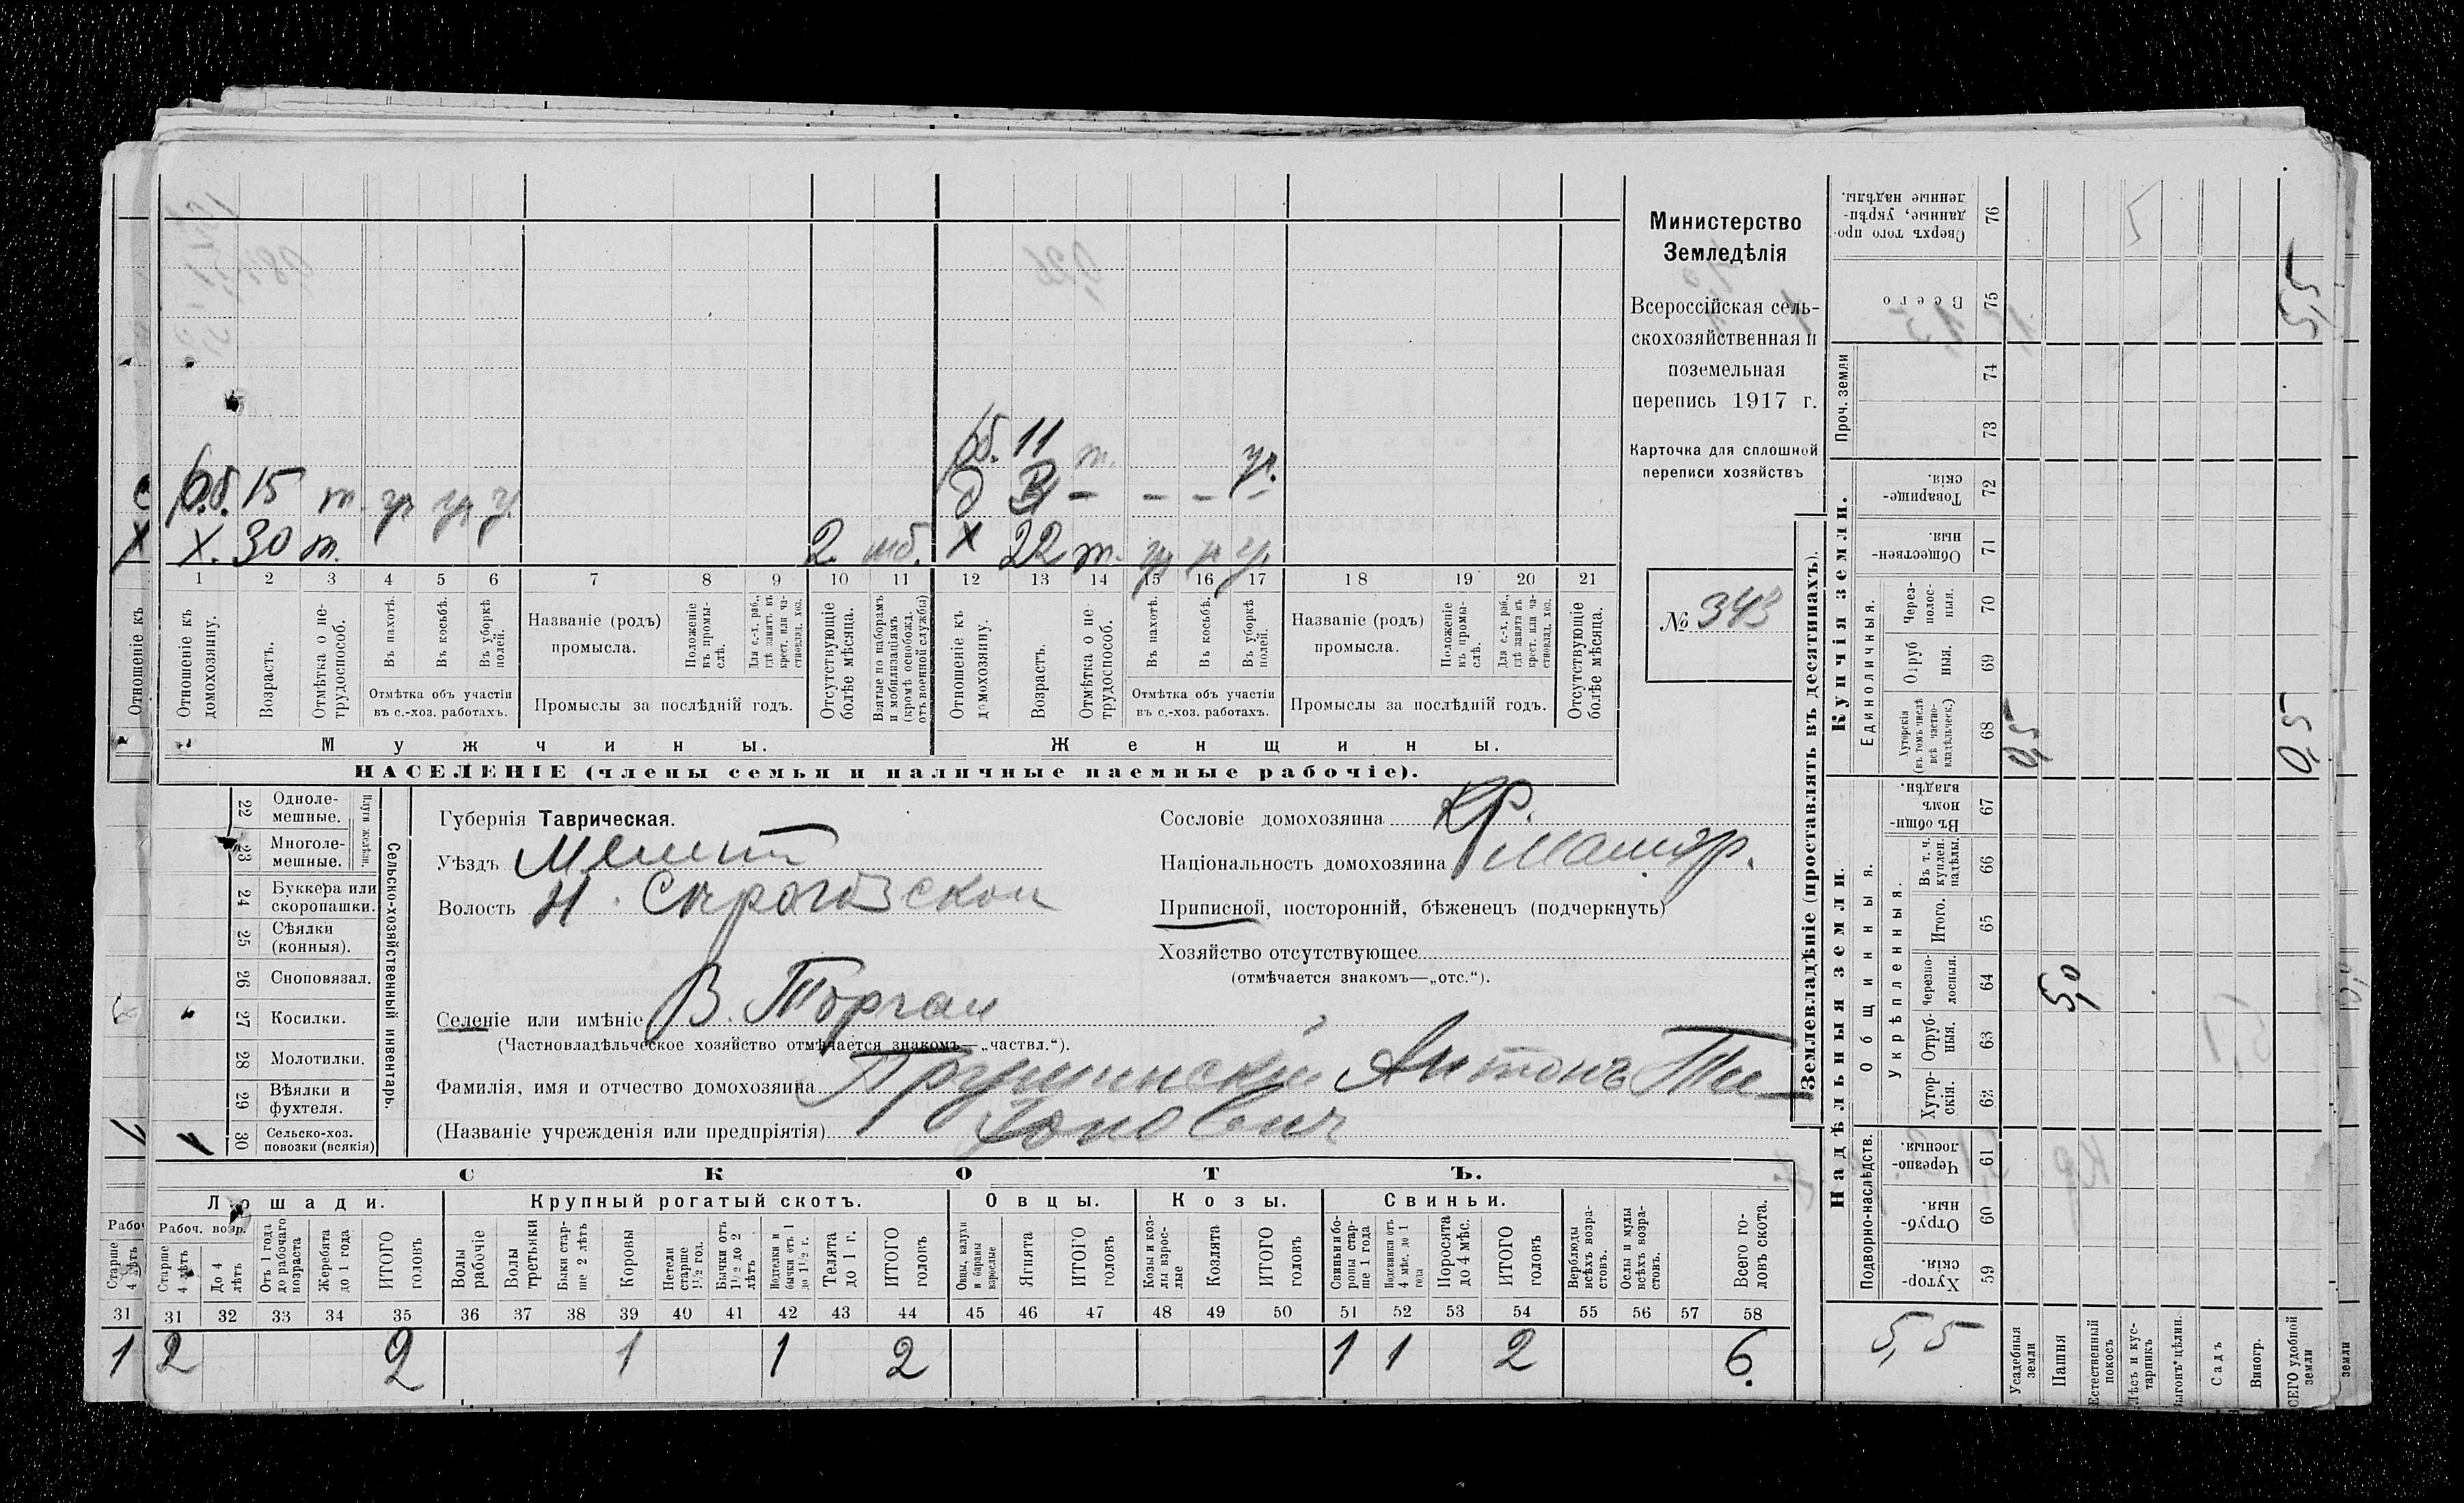 Министерство
Земледѣлія
Всероссійская сель-
скохозяйственная и
поземельная
перепись 1917 г.
Карточка для сплошной
переписи хозяйствъ
№ 343
б. 11 т. ур.
р.б. 15 т. ур ур у.
д В - - - -
Х. 30 т. 2 мб. х 22 т. ур у у.
1 2 3 4 5 6 7 8 9 10 11 12 13 14 15 16 17 18 19 20 21
Отношеніе къ домохозяину.
Возрастъ.
Отмѣтка о не-трудоспособ.
Въ пахотѣ.
Въ косьбѣ.
Въ уборкѣ полей.
Отмѣтка объ участіи
въ с.-хоз. работахъ.
Названіе (родъ)
промысла.
Положеніе въ промы-слѣ.
Для с.-х. раб., гдѣ занятъ въ крест. или ча-стновлад. хоз.
Промыслы за послѣдній годъ.
Отсутствующіе болѣе мѣсяца.
Взятые по наборамъ и мобилизаціямъ (кромѣ освобожд. отъ военной службы)
Отношеніе къ домохозяину.
Возрастъ.
Отмѣтка о не трудоспособ.
Въ пахотѣ.
Въ косьбѣ.
Въ уборкѣ полей.
Отмѣтка объ участіи
въ с.-хоз. работахъ.
Названіе (родъ)
промысла.
Положеніе въ промы-слѣ.
Для с.-х. раб., гдѣ занята въ крест. или ча-стновлад. хоз.
Промыслы за послѣдній годъ.
Отсутствующіе болѣе мѣсяца.
Мужчины. Женщины.
НАСЕЛЕНІЕ (члены семьи и наличные наемные рабочіе).
Сельско-хозяйственный инвентарь.
Плуги желѣзн.
22 Одноле-мешные.
23 Многоле-мешные.
24 Буккера или скоропашки.
25 Сѣялки (конныя).
26 Сноповязал.
27 Косилки.
28 Молотилки.
29 Вѣялки и фухтеля.
30 Сельско-хоз. повозки (всякія) 1
Губернія Таврическая.
Уѣздъ Мелит
Волость Н. Сѣрогозской
Селеніе или имѣніе В. Торгаи
(Частновладѣльческое хозяйство отмѣчается знакомъ—„частвл.“).
Фамилія, имя и отчество домохозяина Антонъ Ти-
(Названіе учрежденія или предпріятія) хоновичъ
Сословіе домохозяина Кр.
Національность домохозяина Малор.
Приписной, посторонній, бѣженецъ (подчеркнуть)
Хозяйство отсутствующее
(отмѣчается знакомъ—„отс.“).
СКОТЪ.
Лошади. Крупный рогатый скотъ. Овцы. Козы. Свиньи.
Рабоч. возр.
Старше 4 лѣтъ
До 4 лѣтъ
Отъ 1 года до рабочаго возраста
Жеребята до 1 года
ИТОГО головъ
Волы рабочіе
Волы третьяки
Быки стар-ше 2 лѣтъ
Коровы
Нетели старше 1½ год.
Бычки отъ 1½ до 2 лѣтъ
Нетели и бычки отъ 1 до 1½ г.
Телята до 1 г.
ИТОГО головъ
Овцы, валухи и бараны взрослые
Ягнята
ИТОГО головъ
Козы и коз-лы взрос-лые
Козлята
ИТОГО головъ
Свиньи и бо-ровы стар-ше 1 года
Подсвинки отъ 4 мѣс. до 1 года
Поросята до 4 мѣс.
ИТОГО головъ
Верблюды всѣхъ возра-стовъ.
Ослы и мулы всѣхъ возра-стовъ.
Всего го-ловъ скота.
31 31 32 33 34 35 36 37 38 39 40 41 42 43 44 45 46 47 48 49 50 51 52 53 54 55 56 57 58
1 2 2 1 1 2 1 1 2 6
Землевладѣніе (проставлять въ десятинахъ).
Купчія земли.
Надѣльныя земли.
Проч. земли
Единоличныя.
Общинныя.
Укрѣпленныя.
Подворно-наслѣдств.
Сверхъ того про-данные, укрѣп-ленные надѣлы. 76
Всего 75
74
73
Товарище-скія. 72
Обществен-ныя. 71
Через-полос-ныя. 70
Отруб ныя. 69
Хуторскія (въ томъ числѣ всѣ частно-владѣльческ.) 68
Въ общин-номъ владѣн. 67
Въ т. ч. куплен. надѣлы. 66
Итого. 65
Черезпо-лосныя. 64
Отруб-ныя. 63
Хутор-скія. 62
Черезпо-лосныя. 61
Отруб-ныя. 60
Хутор-скія. 59
5,5
0,5
5,0
5,5
0,5
Усадебныя земли
Пашня
Естественный покосъ
Лѣсъ и кус-тарникъ
Выгонъ цѣлин.
Садъ
Виногр.
ВСЕГО удобной земли
земли